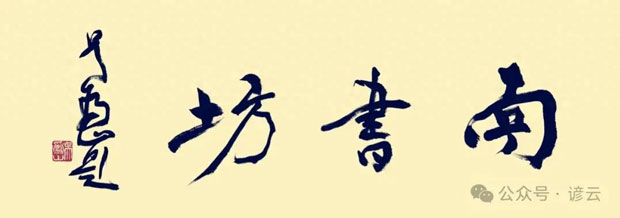 南書坊
公众号·谚云